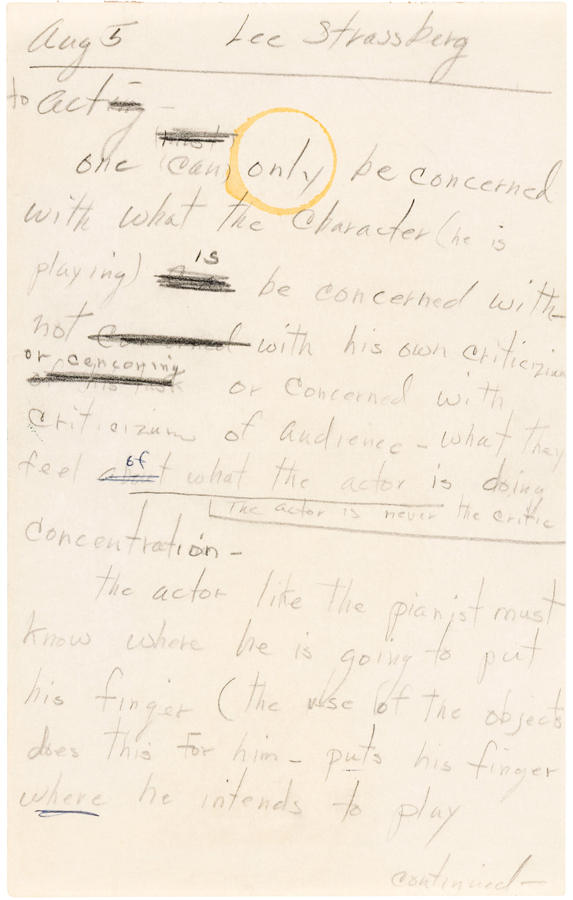 Aug 5 Lee Strassberg
to acting -
must
one (can) only be concerned
with what the character (he is
playing) is be concerned with
not concerned with his own criticizim
or concerning
or his task or concerned with
criticizum of audience - what they
feel of what the actor is doing
The actor is never the critic
Concentration -
the actor like the pianist must
know where he is going to put
his finger (the use of the objects
does this for him - puts his finger
where he intends to play
continued -